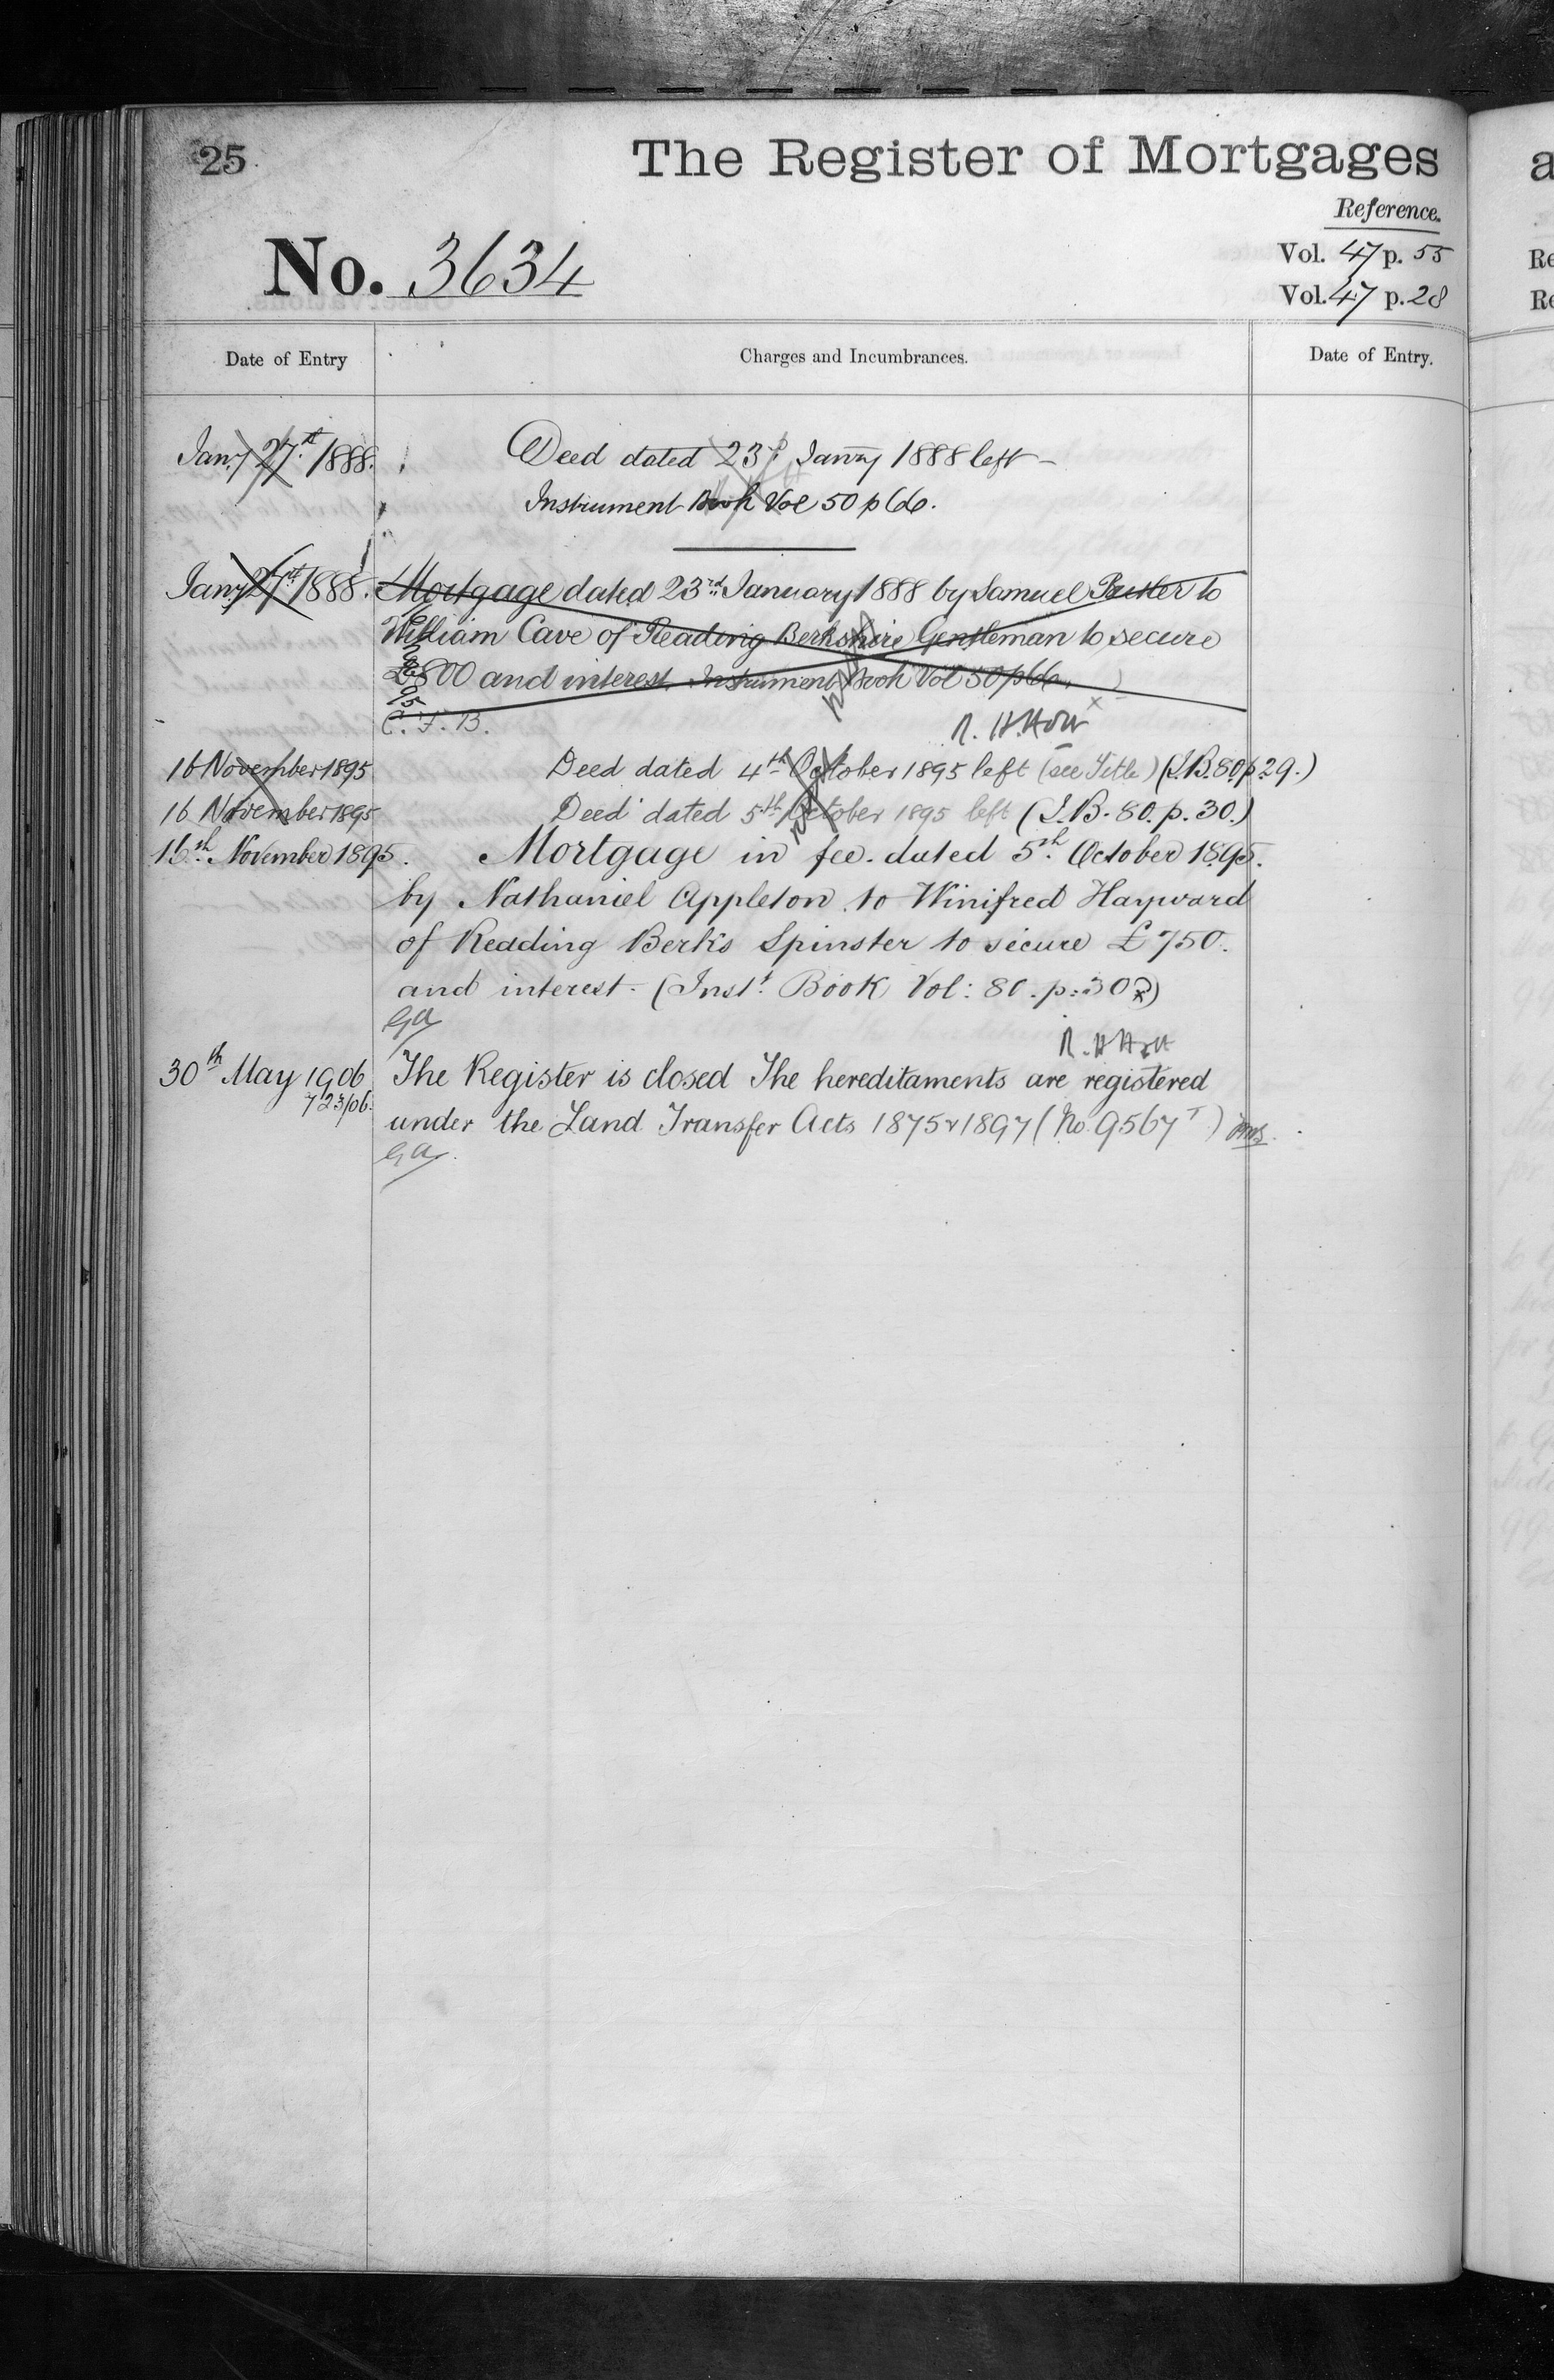 25
The Register of Mortgages
Reference.
No. 3634
Vol. 47 p. 55
Vol. 47 p. 28
Date of Entry
Charges and Incumbrances.
Date of Entry.
Jany 27st 1888. Deed dated 23d Janry 1888 left -
Instrument Book Vol 50 p 66.
Jany 27st 1888. Mortgage dated 23rd January 1888 by Samuel to
William Cave of Reading Berkshire Gentleman to secure
£800 and interest. Instrument Book Vol 50 p 66.
C. F. B. R. H. Holt
16 November 1895 Deed dated 4th October 1895 left (see Title) (I.B. 80. p 29.)
16 November 1895 Deed dated 5th October 1895 left (I.B. 80. p. 30.)
16th November 1895. Mortgage in fee. dated 5th October 1895.
by Nathaniel Appleton to Winifred Hayward
of Reading Berks Spinster to secure £750.
and interest. (Inst. Book Vol: 80. p: 30)
GA
R. H Holt
30th May 1906 The Register is closed The hereditaments are registered
723/06. under the Land Transfer Acts 1875 & 1897 (No. 9567 T)
GA.